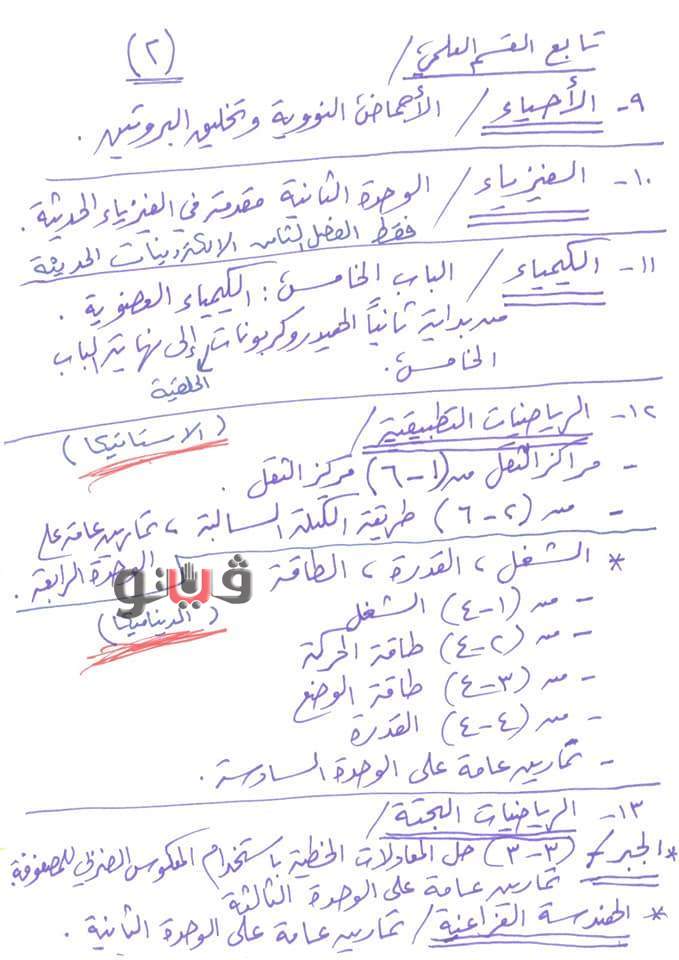 تابع القسم العلمي /
(٢)
٩- الأحياء / الأحماض النووية وتخليق البروتين .
١٠- الفيزياء / الوحدة الثانية مقدمة في الفيزياء الحديثة .
فقط الفصل الثامن الالكترونيات الحديثة
١١- الكيمياء / الباب الخامس : الكيمياء العضوية .
من بداية ثانياً الهيدروكربونات إلى نهاية الباب
الحلقية
الخامس .
١٢- الرياضيات التطبيقية /
(الاستاتيكا)
- مراكز الثقل من (١-٦) مركز الثقل .
- من (٢-٦) طريقة الكتلة السالبة ، تمارين عامة على
الوحدة الرابعة .
* الشغل ، القدرة ، الطاقة
ڤيتو
(الديناميكا)
- من (١-٤) الشغل
- من (٢-٤) طاقة الحركة
- من (٣-٤) طاقة الوضع
- من (٤-٤) القدرة
- تمارين عامة على الوحدة السادسة .
١٣- الرياضيات البحتة /
* الجبر / (٣-٣) حل المعادلات الخطية باستخدام المعكوس الضربي للمصفوفة
تمارين عامة على الوحدة الثالثة
* الهندسة الفراغية / تمارين عامة على الوحدة الثانية .